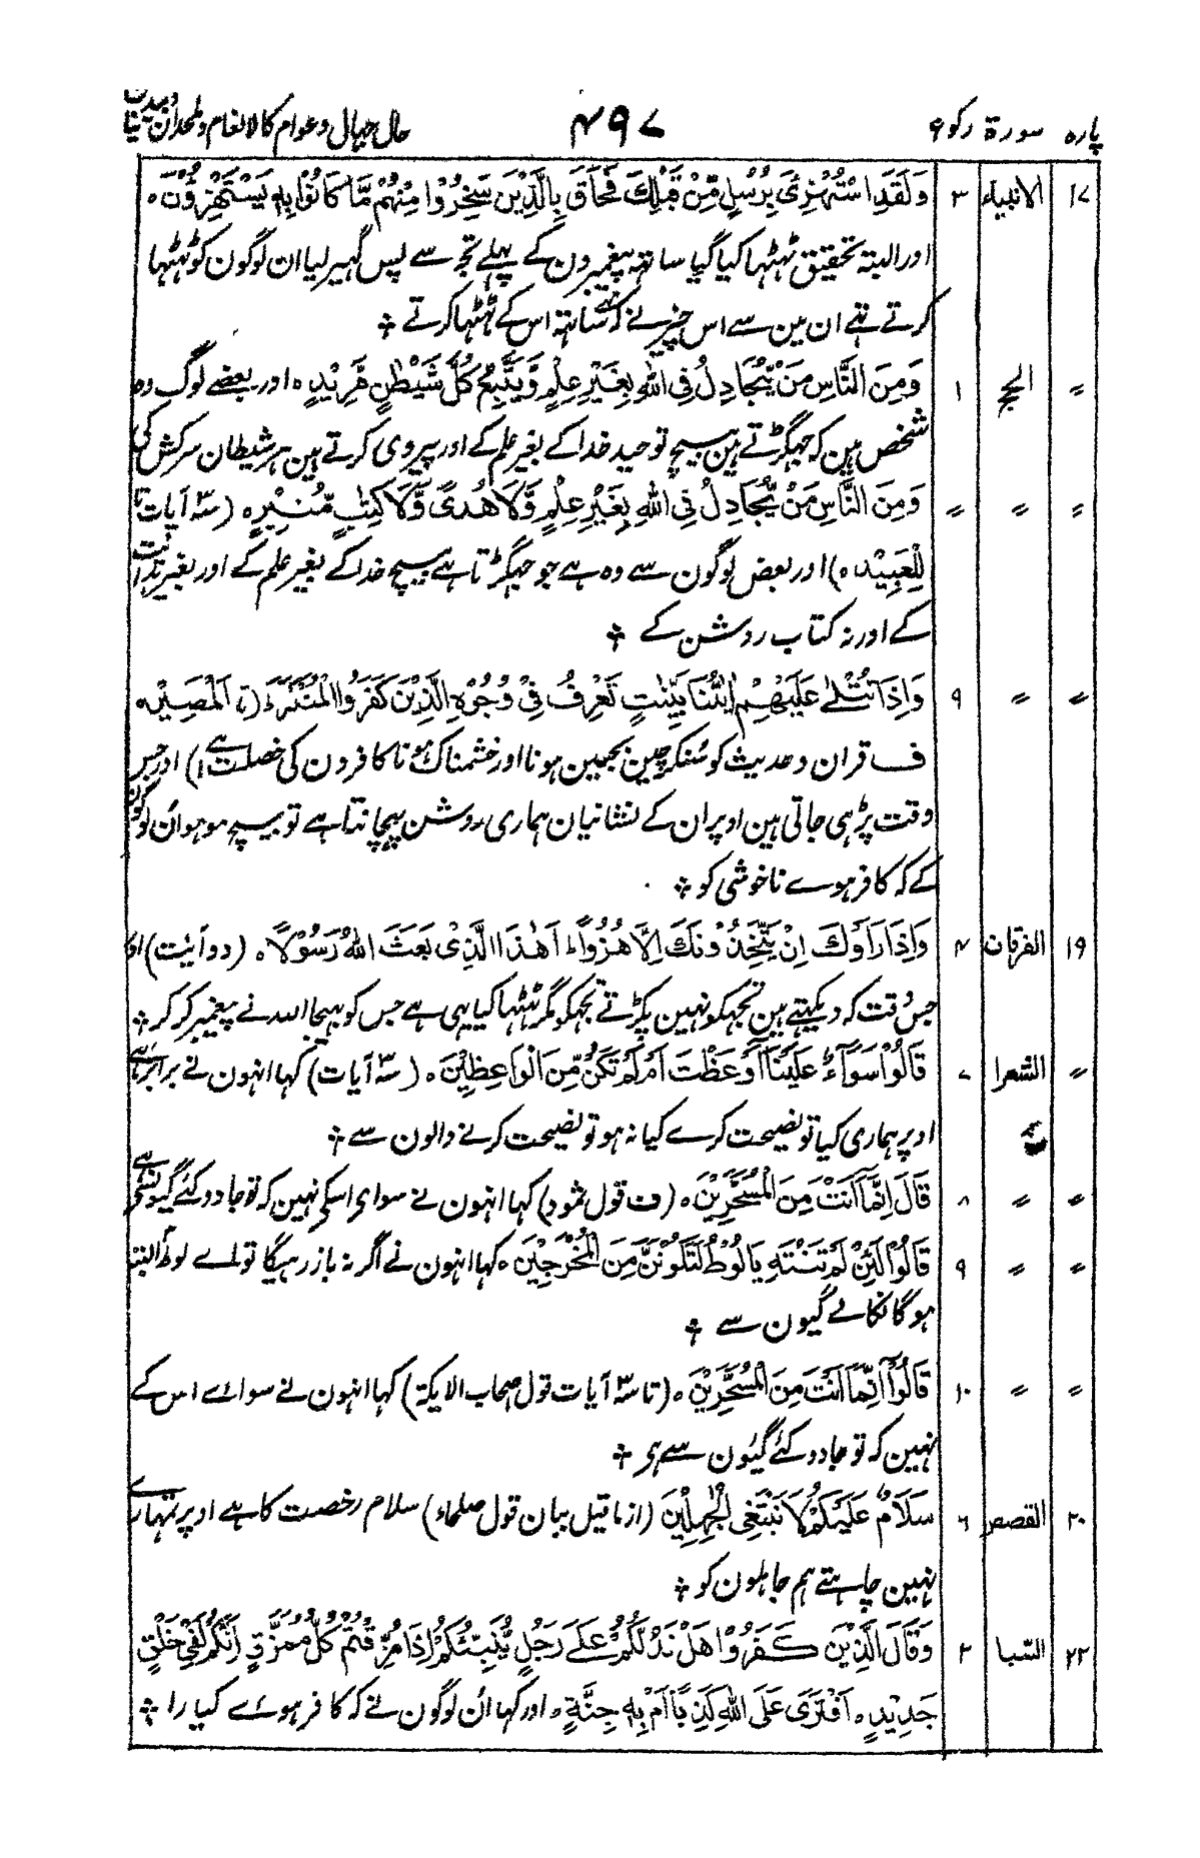 پاره سورة رکوع ۴۹۷ حال جہال و عوام کالانعام و ملحدان بیدینان
۱۷ الانبیاء ۳ وَلَقَدِ اسْتُهْزِئَ بِرُسُلٍ مِّنْ قَبْلِكَ فَحَاقَ بِالَّذِيْنَ سَخِرُوْا مِنْهُمْ مَّا كَانُوْا بِهٖ يَسْتَهْزِءُوْنَ ہ
اور البتہ تحقیق ٹھٹھا کیا گیا ساتھ پیغمبرون کے پہلے تجھ سے پس گھیر لیا ان لوگون کو ٹھٹھا
کرتے تھے ان مین سے اس چیز نے کہ تھے ساتھ اس کے ٹھٹھا کرتے ÷
〃 الحج ۱ وَمِنَ النَّاسِ مَنْ يُّجَادِلُ فِی اللّٰهِ بِغَيْرِ عِلْمٍ وَّيَتَّبِعُ كُلَّ شَيْطٰنٍ مَّرِيْدٍ ہ اور بعضے لوگ وہ
شخص ہین کہ جھگڑتے ہین بیچ توحید خدا کے بغیر علم کے اور پیروی کرتے ہین ہر شیطان سرکش کی
〃 〃 〃 وَمِنَ النَّاسِ مَنْ يُّجَادِلُ فِی اللّٰهِ بِغَيْرِ عِلْمٍ وَّلَا هُدًى وَّلَا كِتٰبٍ مُّنِيْرٍ ہ (سہ آیات تا
لِلْعَبِيْدِ ہ) اور بعض لوگون سے وہ ہے جو جھگڑتا ہے بیچ خدا کے بغیر علم کے اور بغیر ہدایت
کے اور نہ کتاب روشن کے ÷
〃 〃 ۹ وَاِذَا تُتْلٰى عَلَيْهِمْ اٰيٰتُنَا بَيِّنٰتٍ تَعْرِفُ فِیْ وُجُوْهِ الَّذِيْنَ كَفَرُوا الْمُنْكَرَ ؕ (تا الْمَصِيْرُ ہ
ف قران وحدیث کو سُنکر چین بجبین ہونا اور خشمناک ہونا کافرون کی خصلت ہے ۱) اور جس
وقت پڑھی جاتی ہین اوپر ان کے نشانیان ہماری روشن پہچانتا ہے تو بیچ موہوان لوگون
کے کہ کافر ہوے ناخوشی کو ÷
۱۹ الفرقان ۴ وَاِذَا رَاَوْكَ اِنْ يَّتَّخِذُوْنَكَ اِلَّا هُزُوًا ؕ اَهٰذَا الَّذِیْ بَعَثَ اللّٰهُ رَسُوْلًا ہ (دو آیت) اور
جس وقت کہ دیکھتے ہین تجھکو نہین پکڑتے تجھکو مگر ٹھٹھا کیا یہی ہے جس کو بھیجا اللہ نے پیغمبر کر کر ÷
〃 الشعرا ۷ قَالُوْا سَوَآءٌ عَلَيْنَآ اَوَعَظْتَ اَمْ لَمْ تَكُنْ مِّنَ الْوَاعِظِيْنَ ہ (سہ آیات) کہا انہون نے برابر ہے
اوپر ہماری کیا تو نصیحت کرے کیا نہ ہو تو نصیحت کرنے والون سے ÷
〃 〃 ۸ قَالَ اِنَّمَآ اَنْتَ مِنَ الْمُسَحَّرِيْنَ ہ (ف قول ثمود) کہا انہون نے سوای اسکی نہین کہ تو جادو کئے گیونسے ہے
〃 〃 ۹ قَالُوْا لَئِنْ لَّمْ تَنْتَهِ يَا لُوْطُ لَتَكُوْنَنَّ مِنَ الْمُخْرَجِيْنَ ہ کہا انہون نے اگر نہ باز رہیگا تو اے لوط البتہ
ہوگا نکالے گیون سے ÷
〃 〃 ۱۰ قَالُوْآ اِنَّمَآ اَنْتَ مِنَ الْمُسَحَّرِيْنَ ہ (تا سہ آیات قول صحاب الایکۃ) کہا انہون نے سوائے اس کے
نہین کہ تو جادو کئے گیون سے ہی ÷
۲۰ القصص ۶ سَلَامٌ عَلَيْكُمْ لَا نَبْتَغِی الْجٰهِلِيْنَ (از ماقبل بیان قول صلحاء) سلام رخصت کا ہے اوپر تمہارے
نہین چاہتے ہم جاہلون کو ÷
۲۲ السّبا ۲ وَقَالَ الَّذِيْنَ كَفَرُوْا هَلْ نَدُلُّكُمْ عَلٰى رَجُلٍ يُّنَبِّئُكُمْ اِذَا مُزِّقْتُمْ كُلَّ مُمَزَّقٍ اِنَّكُمْ لَفِیْ خَلْقٍ
جَدِيْدٍ ہ اَفْتَرٰى عَلَى اللّٰهِ كَذِبًا اَمْ بِهٖ جِنَّةٌ ہ اور کہا اُن لوگون نے کہ کافر ہوے کیا را ÷